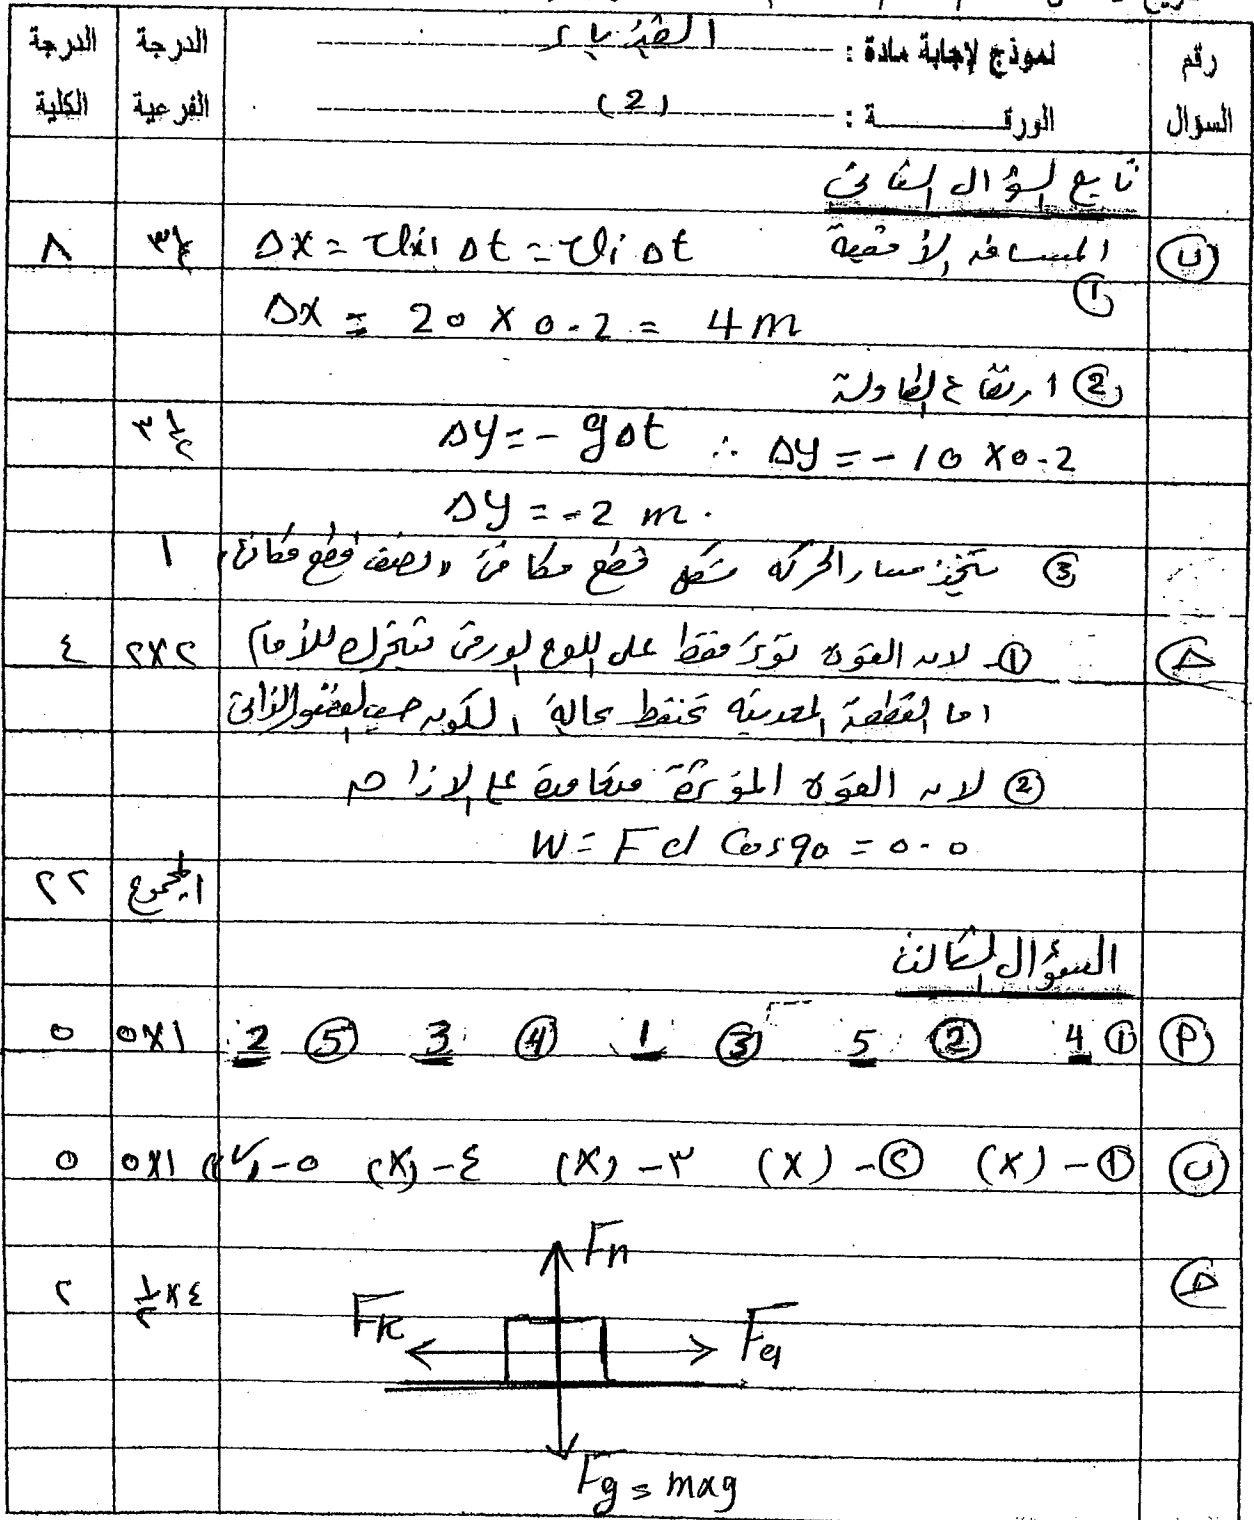 رقم السؤال
نموذج لإجابة مادة : الفيزياء
الورقة : (2)
الدرجة الفرعية
الدرجة الكلية
تابع السؤال الثاني
ب ① المسافة الأفقية Δx = vxi Δt = vi Δt ٨
Δx = 20 x 0.2 = 4 m
② ارتفاع الطاولة
Δy = - gΔt ∴ Δy = -10 x 0.2 ٣ ١/٢
Δy = -2 m.
③ تتخذ مسار الحركة شكل قطع مكافئ او نصف قطع مكافئ ١
ج ① لان القوة تؤثر فقط على اللوح الورقي فيتحرك للأمام ٢x٢ ٤
اما القطعة المعدنية تحتفظ بحالة السكون حسب القصور الذاتي
② لان القوة المؤثرة متعامدة على الازاحة
W = Fd Cos90 = 0.0
المجموع ٢٢
السؤال الثالث
أ ① 4 ② 5 ③ 1 ④ 3 ⑤ 2 ٥x١ ٥
ب ①- (x) ②- (x) ٣- (x) ٤- (x) ٥- (✓) ٥x١ ٥
ج Fn ٤x١/٢ ٢
Fk Fa
Fg = mxg